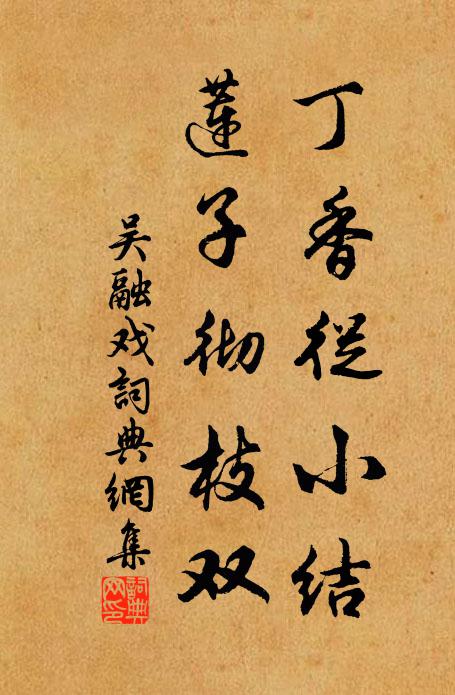 丁香從小结
蓮子彻枝双
吴融戏詞典網集
詞典網印